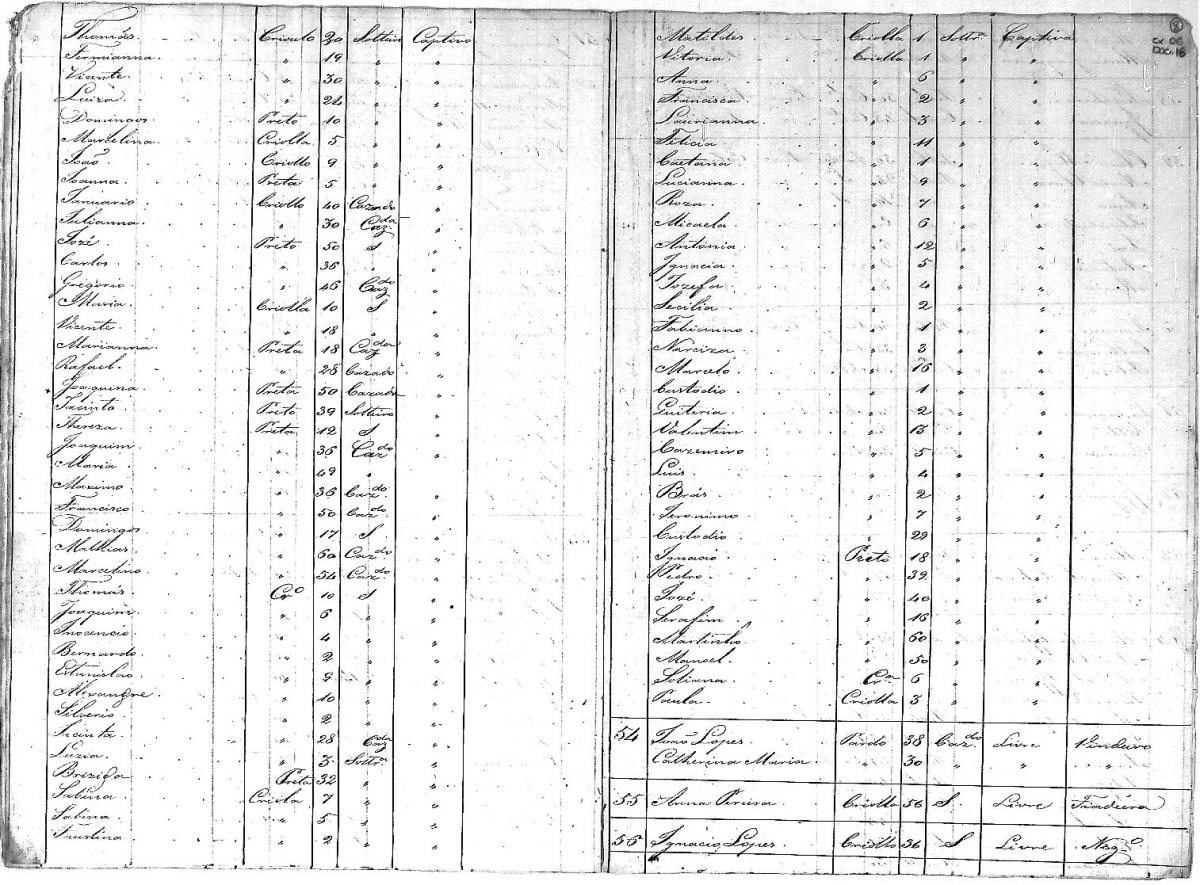 Thomás Crioulo 20 Solteiro Captivo
Fermianna " 19 " "
Vicente " 30 " "
Luiza " 24 " "
Domingos Preto 10 " "
Marcelina Criolla 5 " "
João Criollo 9 " "
Joanna Preta 5 " "
Januario Criollo 40 Cazado "
Julianna " 30 Caz.da "
José Preto 50 S "
Carlos " 36 " "
Gregorio " 46 Caz.do "
Maria Criolla 10 S "
Vicente " 18 " "
Marianna Preta 18 Caz.da "
Rafael " 28 Cazado "
Joaquina Preta 50 Cazada "
Jacinto Preto 39 Solteiro "
Thereza Preta 12 S "
Joaquim " 36 Caz.do "
Maria " 49 " "
Maximo " 36 Caz.do "
Francisco " 50 Caz.do "
Domingos " 17 S "
Mathias " 60 Caz.do "
Marcelino " 54 Caz.do "
Thomás Cr.o 10 S "
Joaquim " 6 " "
Inocencio " 4 " "
Bernardo " 2 " "
Estanislao " 9 " "
Alexandre " 10 " "
Silverio " 2 " "
Jacinta " 28 Caz.da "
Luzia " 3 Soltr.a "
Brezida Preta 32 " "
Sabina Criola 7 " "
Sabina " 5 " "
Faustina " 2 " "
8
cx 06
DOC. 16
Matildes Criolla 1 Soltr.a Captiva
Vitoria Criolla 1 " "
Anna " 6 " "
Francisca " 2 " "
Laurianna " 3 " "
Feticia " 11 " "
Caetana " 1 " "
Lucianna " 9 " "
Roza " 7 " "
Micaela " 6 " "
Antonia " 12 " "
Ignacia " 5 " "
Jozefa " 4 " "
Secilia " 2 " "
Fabianno " 1 " "
Narciza " 3 " "
Marcelo " 16 " "
Custodio " 1 " "
Quiteria " 2 " "
Valentim " 13 " "
Cazemiro " 5 " "
Luis " 4 " "
Brás " 2 " "
Jeronimo " 7 " "
Custodio " 29 " "
Ignacio Preto 18 " "
Pedro " 39 " "
José " 40 " "
Serafim " 16 " "
Martinho " 60 " "
Manoel " 50 " "
Cr.a 6 " "
Paula Criolla 3 " "
54 João Lopes Pardo 38 Caz.do Livre
Catherina Maria " 30 " " "
55 Anna Pereira Criolla 56 S Livre Fiadeira
56 Ignacio Lopes Criollo 36 S Livre Neg.o